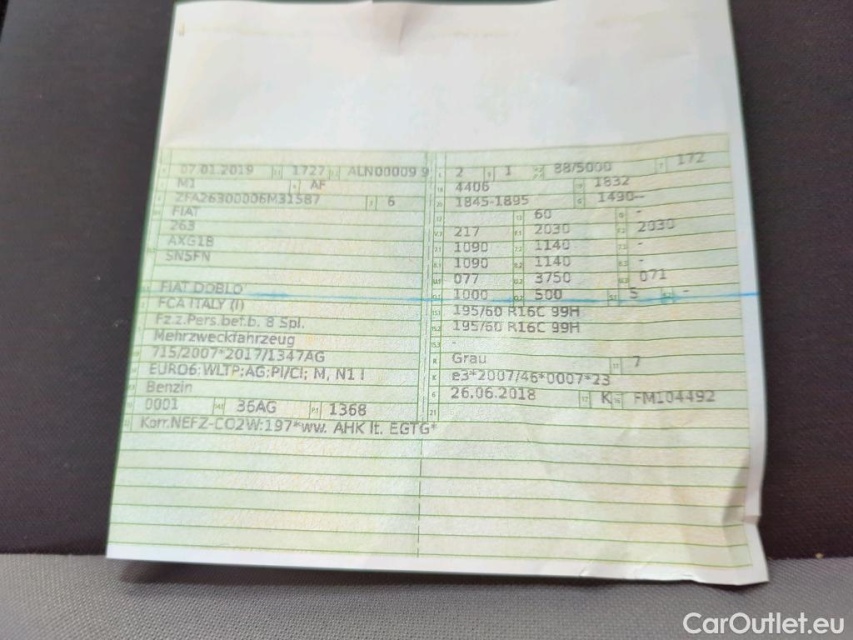 07.01.2019 1727 ALN00009 9
M1 AF
ZFA26300006M31587 6
FIAT
263
AXG1B
SNSFN
FIAT DOBLO
FCA ITALY (I)
Fz.z.Pers.bef.b. 8 Spl.
Mehrzweckfahrzeug
715/2007*2017/1347AG
EURO6;WLTP;AG;PI/CI; M, N1 I
Benzin
0001 36AG 1368
Korr.NEFZ-CO2W:197*ww. AHK lt. EGTG*
2 1 88/5000 172
4406 1832
1845-1895 1490--
60 -
217 2030 2030
1090 1140 -
1090 1140 -
077 3750 071
1000 500 5 -
195/60 R16C 99H
195/60 R16C 99H
-
Grau 7
e3*2007/46*0007*23
26.06.2018 K FM104492
CarOutlet.eu